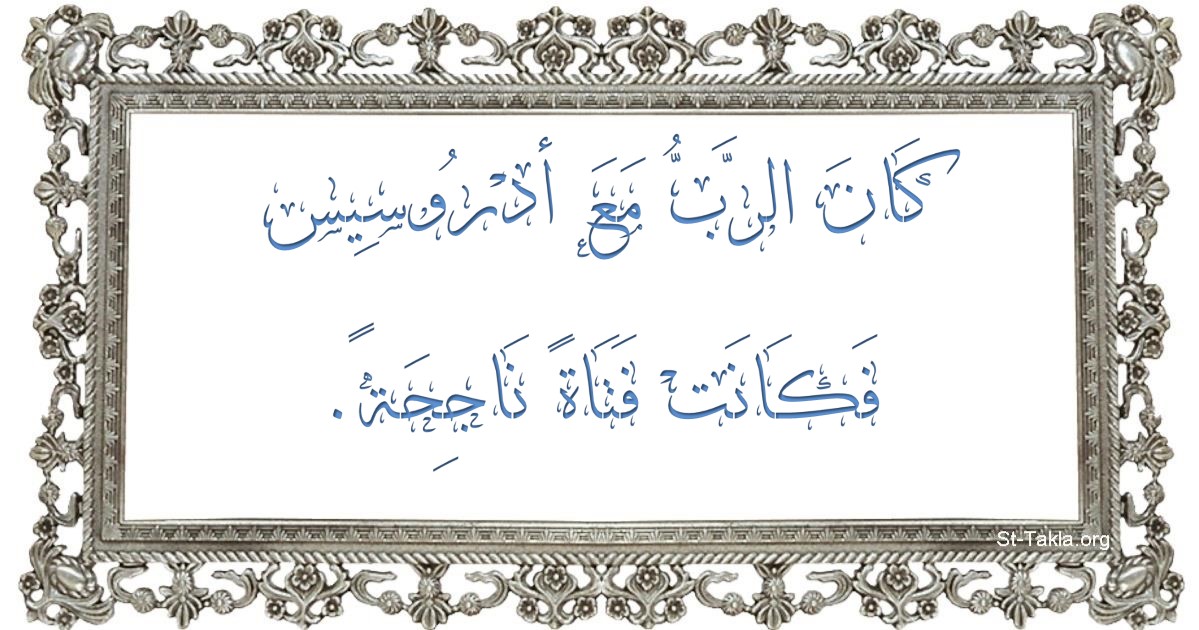 كَانَ الرَّبُّ مَعَ أدْرُوسِيس
فَكَانَتْ فَتَاةً نَاجِحَةً.
St-Takla.org